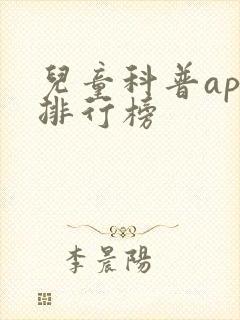 兒童科普ap
排行榜
李晨陽